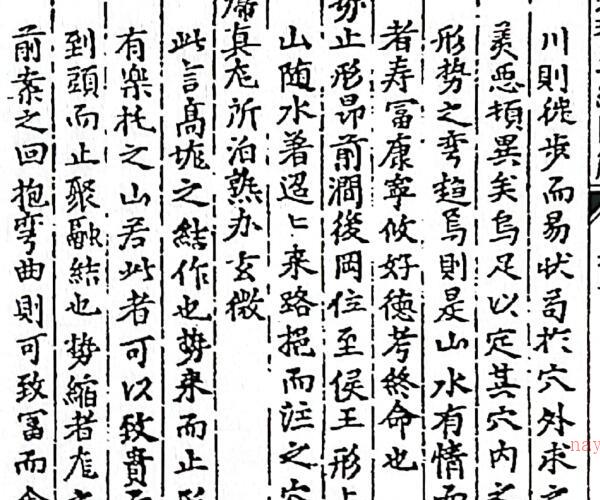 川則徙步而易状局扵穴外求
美惡頓異矣烏足以定其穴内
形勢之彎趋焉則是山水有情而
者寿冨康寧攸好德考終命也
勢止形昂前澗後岡位至侯王形止
山随水着迢〻来路挹而注之穴
真龙所泊熟办玄微
此言髙垅之結作也势来而止形
有樂托之山若此者可以致貴而
到頭而止聚融結也势縮者龙
前案之回抱弯曲則可致冨而
nay